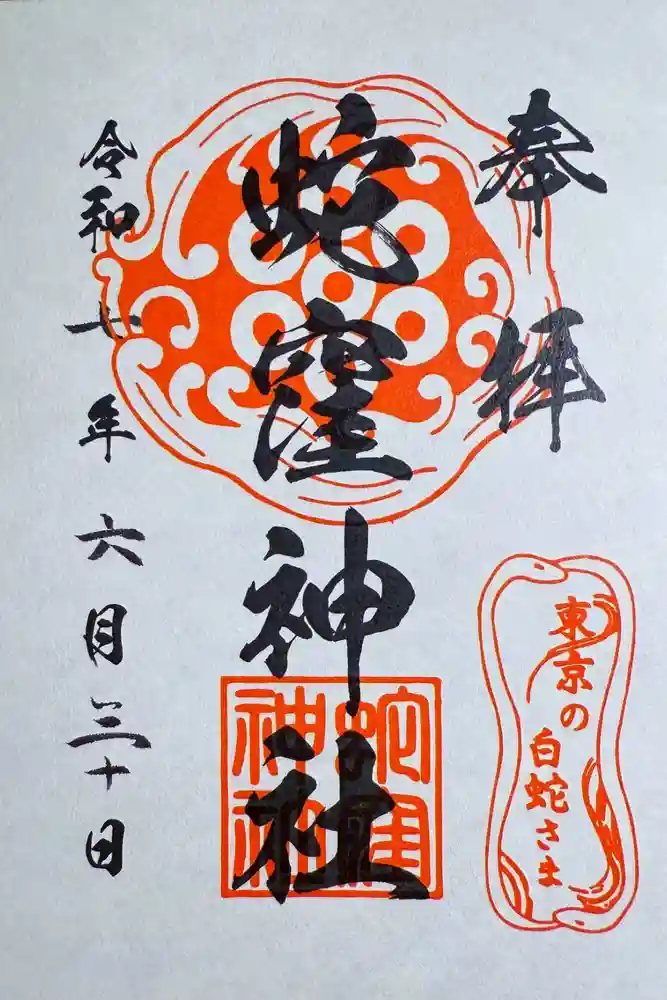 奉拝
蛇窪神社
令和七年六月三十日
東京の
白蛇さま
蛇窪
神社